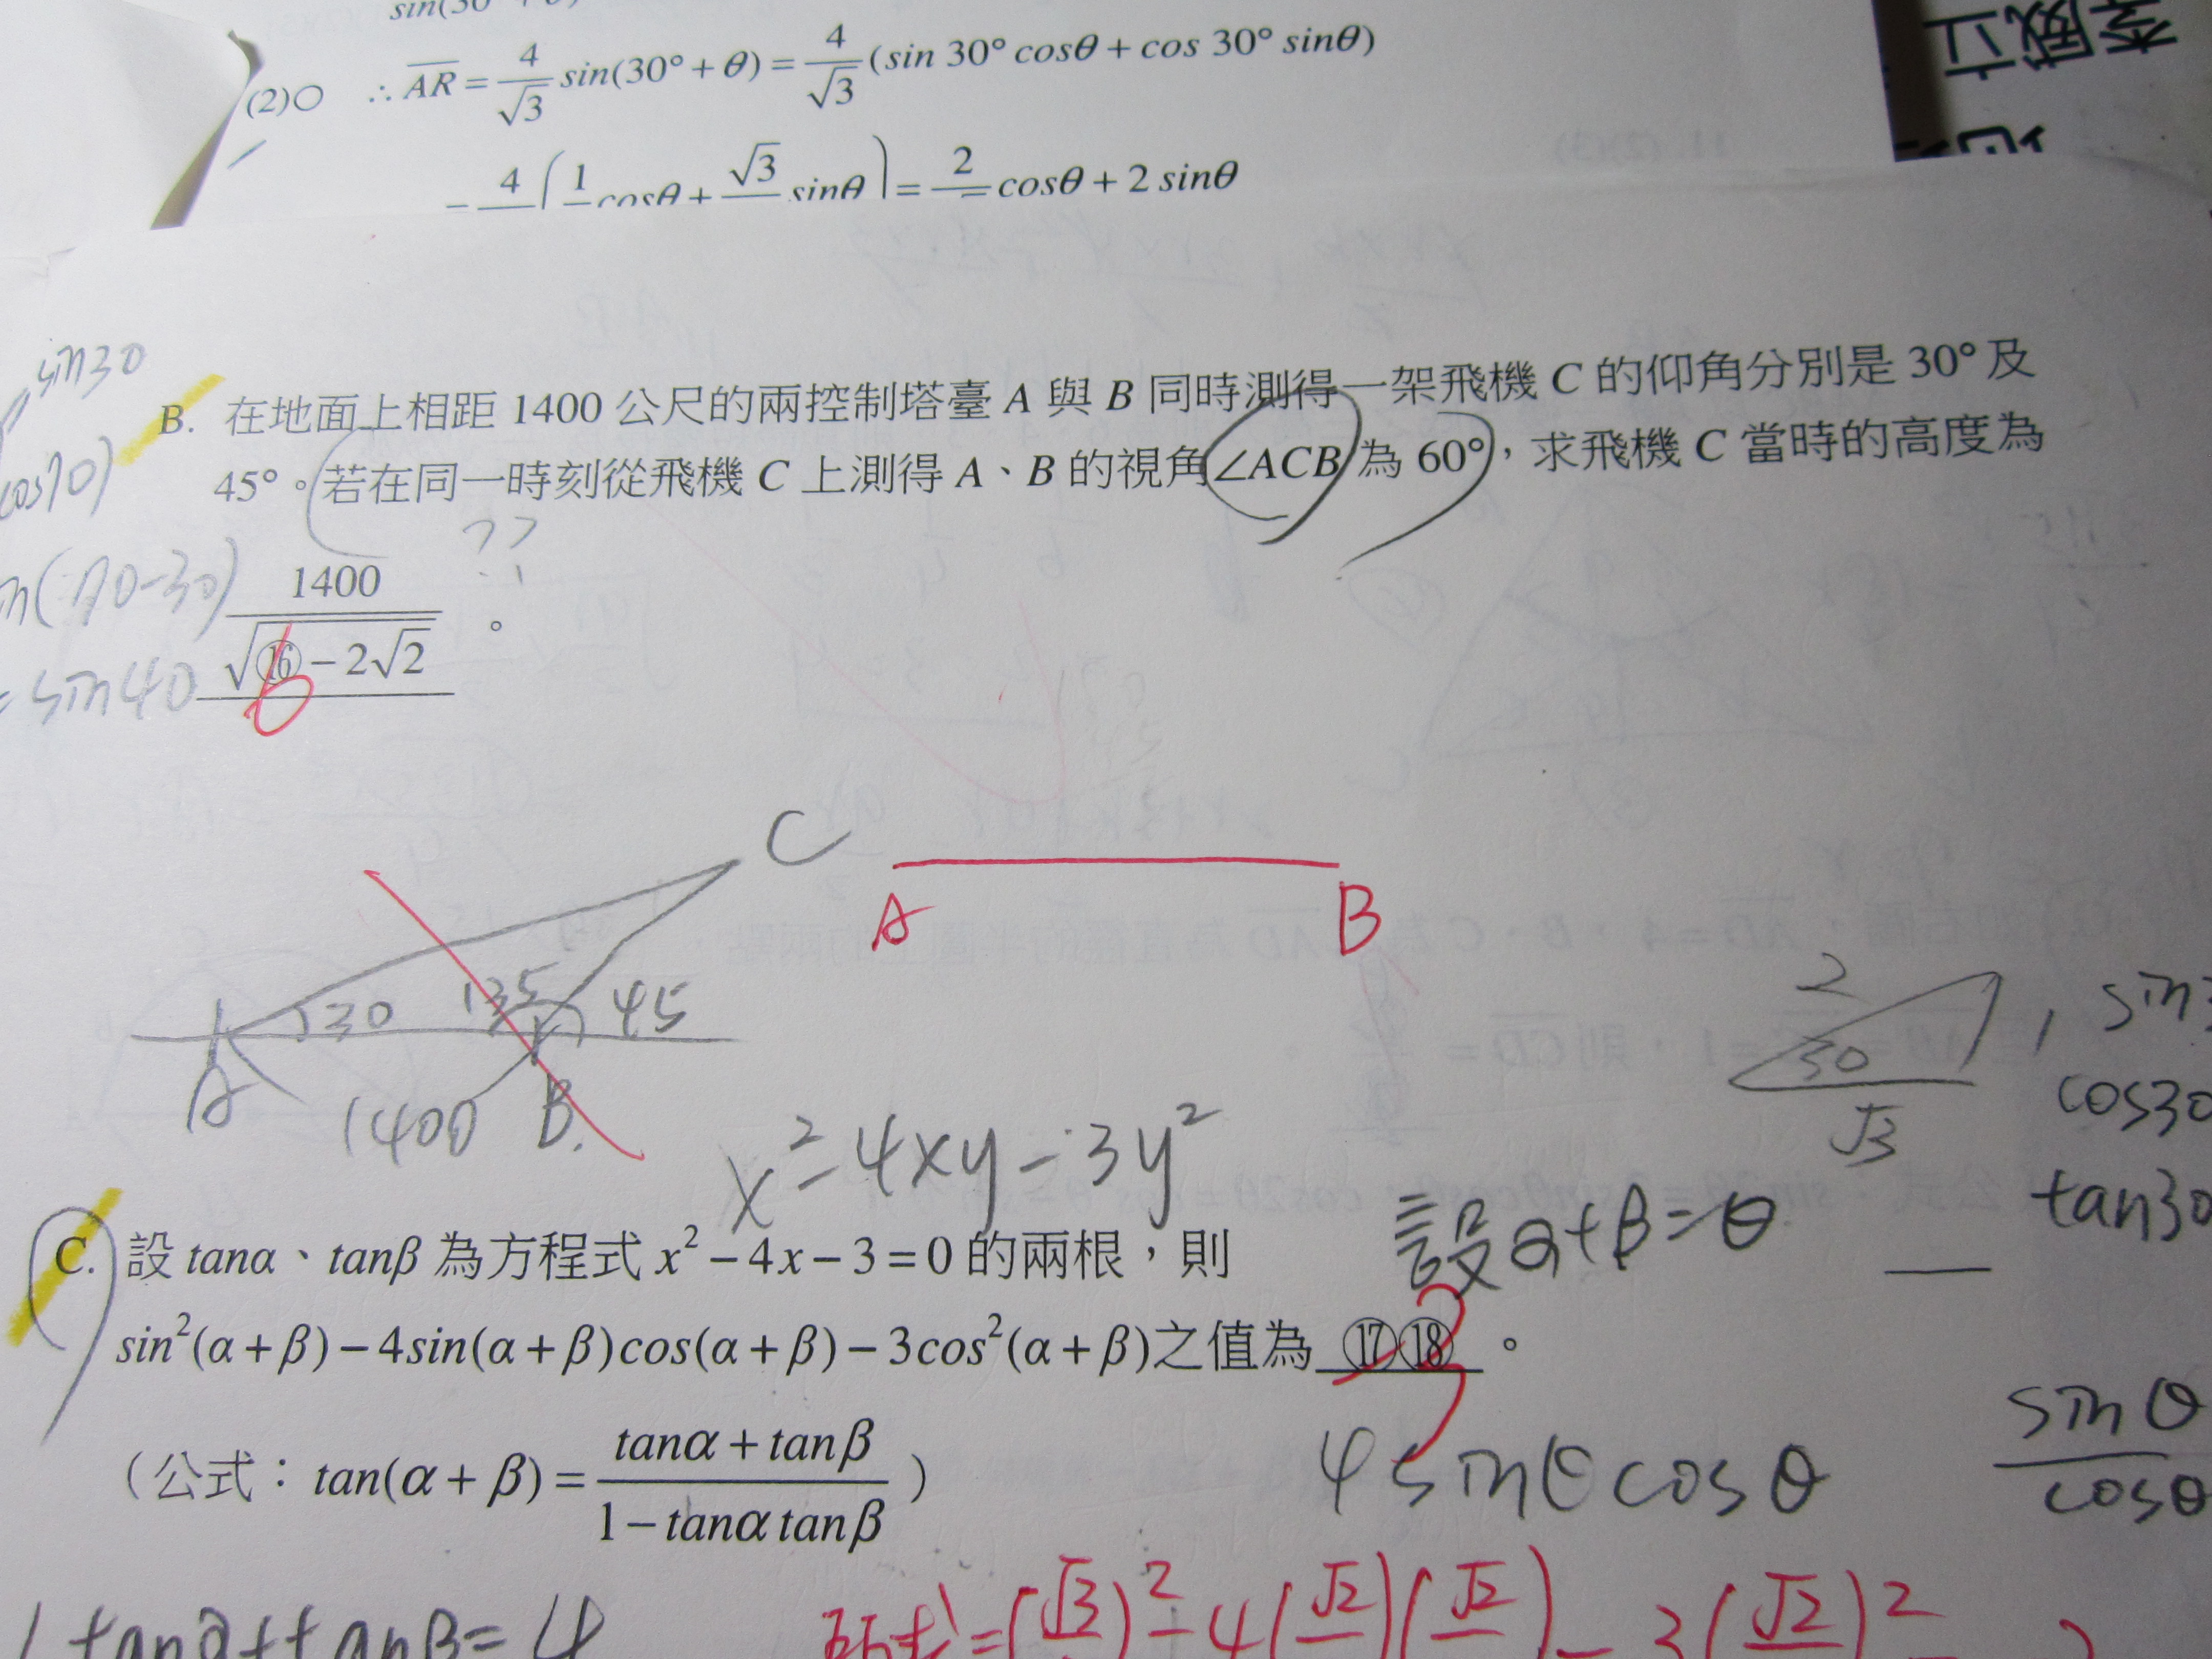 (2)○ ∴ AR = 4/√3 sin(30° + θ) = 4/√3 (sin 30° cosθ + cos 30° sinθ)
= 4 ( 1 cosθ + √3 sinθ ) = 2 cosθ + 2 sinθ
sin30
B. 在地面上相距 1400 公尺的兩控制塔臺 A 與 B 同時測得一架飛機 C 的仰角分別是 30° 及
45°。若在同一時刻從飛機 C 上測得 A、B 的視角 ∠ACB 為 60°，求飛機 C 當時的高度為
??
1400/√(⑯ − 2√2) 。
6
= sin40
C
A B
30 135 45
A 1400 B.
2 30 √3 1
cos30
tan30
x² − 4xy − 3y²
設 α + β = θ
C. 設 tanα、tanβ 為方程式 x² − 4x − 3 = 0 的兩根，則
sin²(α + β) − 4sin(α + β)cos(α + β) − 3cos²(α + β)之值為 ⑰⑱ 。
（公式：tan(α + β) = (tanα + tanβ)/(1 − tanα tanβ)）
4 sinθ cosθ
sinθ/cosθ
tanα + tanβ = 4